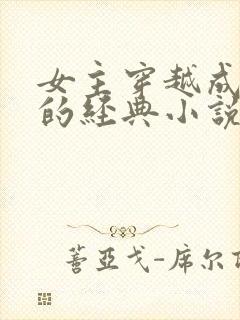 女主穿越成
的经典小说
蓍亚戈-席尔